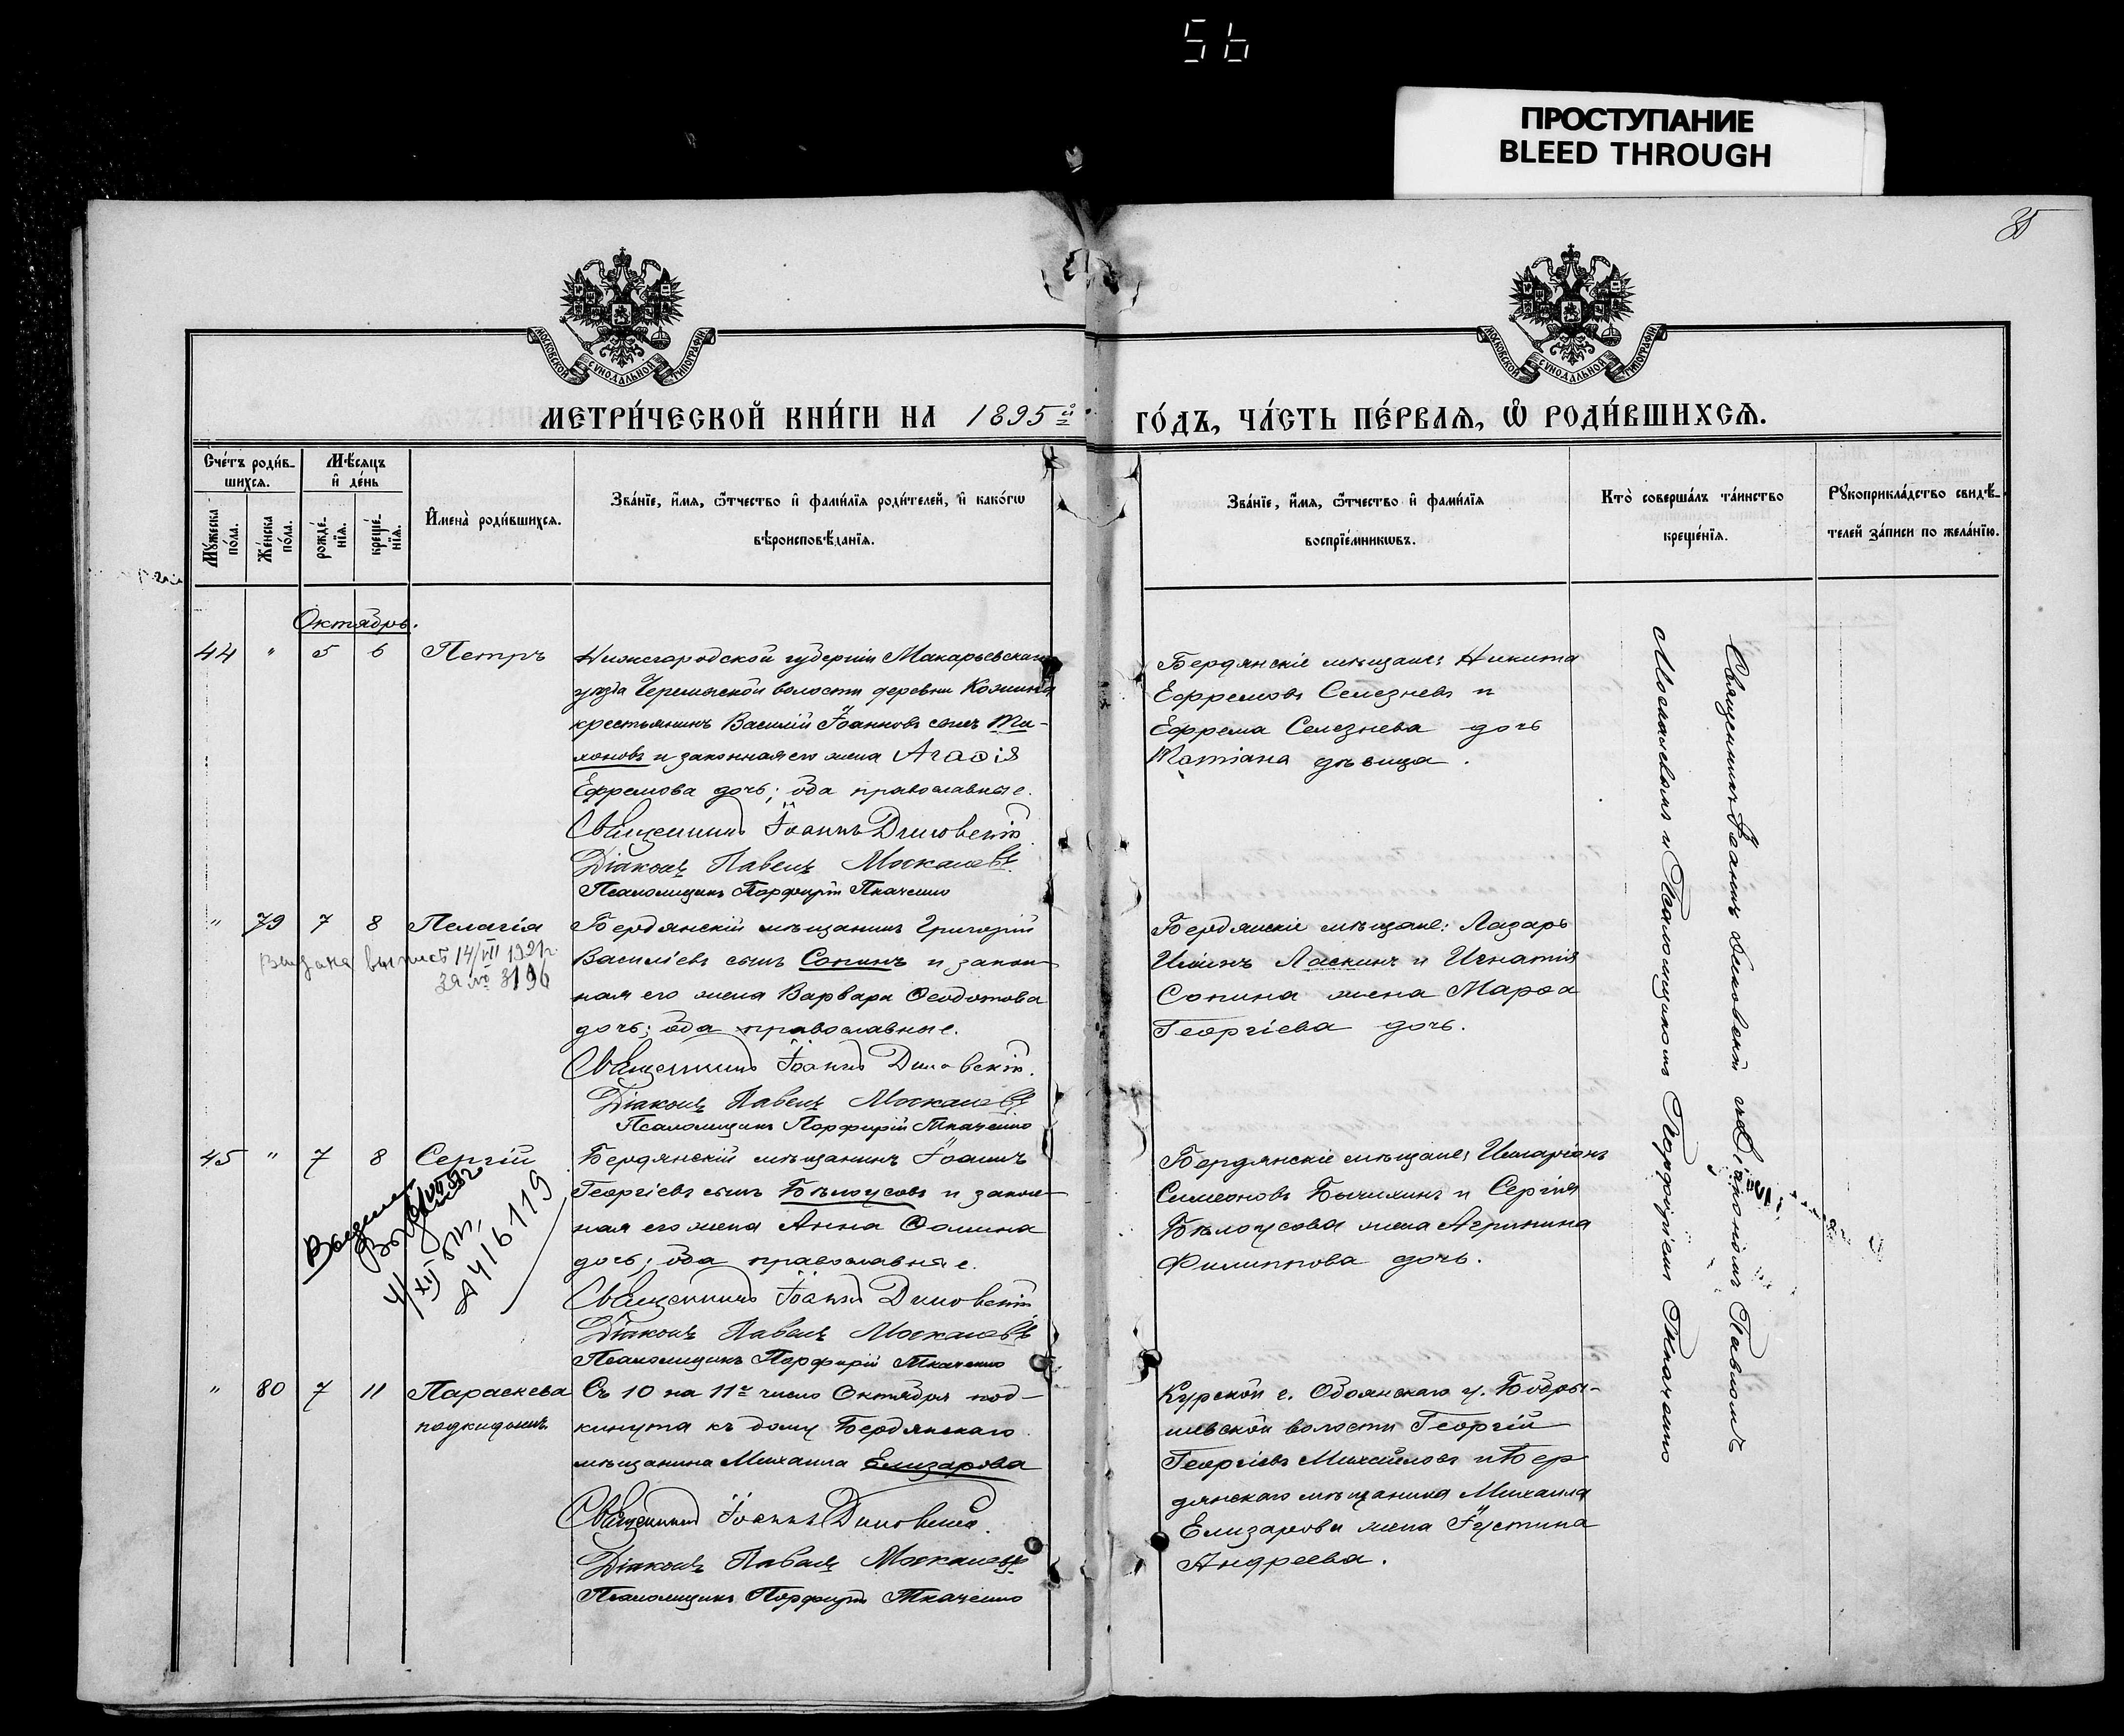 56
ПРОСТУПАНИЕ
BLEED THROUGH
35
МОСКОВСКОЙ СѴНОДАЛЬНОЙ ТИПОГРАФІИ
МОСКОВСКОЙ СѴНОДАЛЬНОЙ ТИПОГРАФІИ
МЕТРИ́ЧЕСКОЙ КНИ́ГИ НА 1895й
ГО́ДЪ, ЧА́СТЬ ПЕ́РВАЯ, Ѡ РОДИ́ВШИХСЯ.
Сче́тъ роди́в-
шихся.
Му́жеска по́ла.
Же́нска по́ла.
Мѣ́сяцъ
и҆ де́нь
рожде́-
нїя.
креще́-
нїя.
И҆мена̀ роди́вшихся.
Зва́нїе, и҆́мя, ѻ҆́тчество и҆ фами́лїя роди́телей, и҆ како́гѡ
вѣроисповѣ́данїя.
Зва́нїе, и҆́мя, ѻ҆́тчество и҆ фами́лїя
воспрїе́мникѡвъ.
Кто̀ соверша́лъ та́инство
креще́нїя.
Рꙋкоприкла́дство свидѣ́-
телей за́писи по жела́нїю.
Октябрь.
44 " 5 6 Петръ
Нижегородской губерніи Макарьевскаго
уѣзда Черемисской волости деревни
крестьянинъ Василій Іоанновъ сынъ Ти-
хоновъ и законная его жена Агаѳія
Ефремова дочь; оба православные.
Священникъ Іоаннъ Димовскій
Діаконъ Павелъ Москалевъ.
Псаломщикъ Порфирій Ткаченко
Бердянскіе мѣщане: Никита
Ефремовъ Селезневъ и
Ефрема Селезнева дочь
Татіана дѣвица.
" 79 7 8 Пелагія
Выдана выпись 14/VII 1921г.
за № 3196
Бердянскій мѣщанинъ Григорій
Василіевъ сынъ Сопинъ и закон-
ная его жена Варвара Ѳеодотова
дочь; оба православные.
Священникъ Іоаннъ Димовскій.
Діаконъ Павелъ Москалевъ
Псаломщикъ Порфирій Ткаченко
Бердянскіе мѣщане: Лазарь
Ильинъ Ласкинъ и Игнатія
Сопина жена Марѳа
Георгіева дочь.
45 " 7 8 Сергій
4/XII
416119
Бердянскій мѣщанинъ Іоаннъ
Георгіевъ сынъ Бѣлоусовъ и закон-
ная его жена Анна Ѳомина
дочь; оба православные.
Священникъ Іоаннъ Димовскій
Діаконъ Павелъ Москалевъ
Псаломщикъ Порфирій Ткаченко
Бердянскіе мѣщане: Иларіонъ
Симеоновъ Бычихинъ и Сергія
Бѣлоусова жена Агрипина
Филиппова дочь.
" 80 7 11 Параскева
подкидышъ.
Съ 10 на 11е число Октября под-
кинута къ дому Бердянскаго
мѣщанина Михаила Елизарова
Священникъ Іоаннъ Димовскій.
Діаконъ Павелъ Москалевъ
Псаломщикъ Порфирій Ткаченко
Курской г. Обоянскаго у. Бобры-
шевской волости Георгій
Георгіевъ Михайловъ и Бер-
дянскаго мѣщанина Михаила
Елизарова жена Іустина
Андреева.
Священникъ Іоаннъ Димовскій съ Діакономъ Павломъ
Москалевымъ и Псаломщикомъ Порфиріемъ Ткаченко